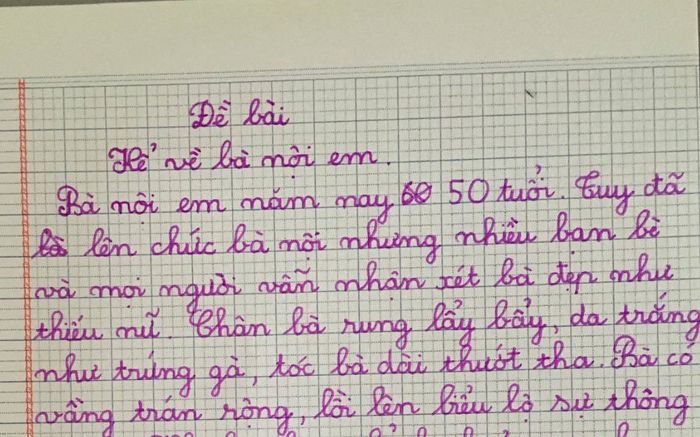 Đề bài
Kể về bà nội em.
Bà nội em năm nay 60 50 tuổi. Tuy đã
là lên chức bà nội nhưng nhiều bạn bè
và mọi người vẫn nhận xét bà đẹp như
thiếu nữ. Chân bà rung lẩy bẩy, da trắng
như trứng gà, tóc bà dài thướt tha. Bà có
vầng trán rộng, lồi lên biểu lộ sự thông